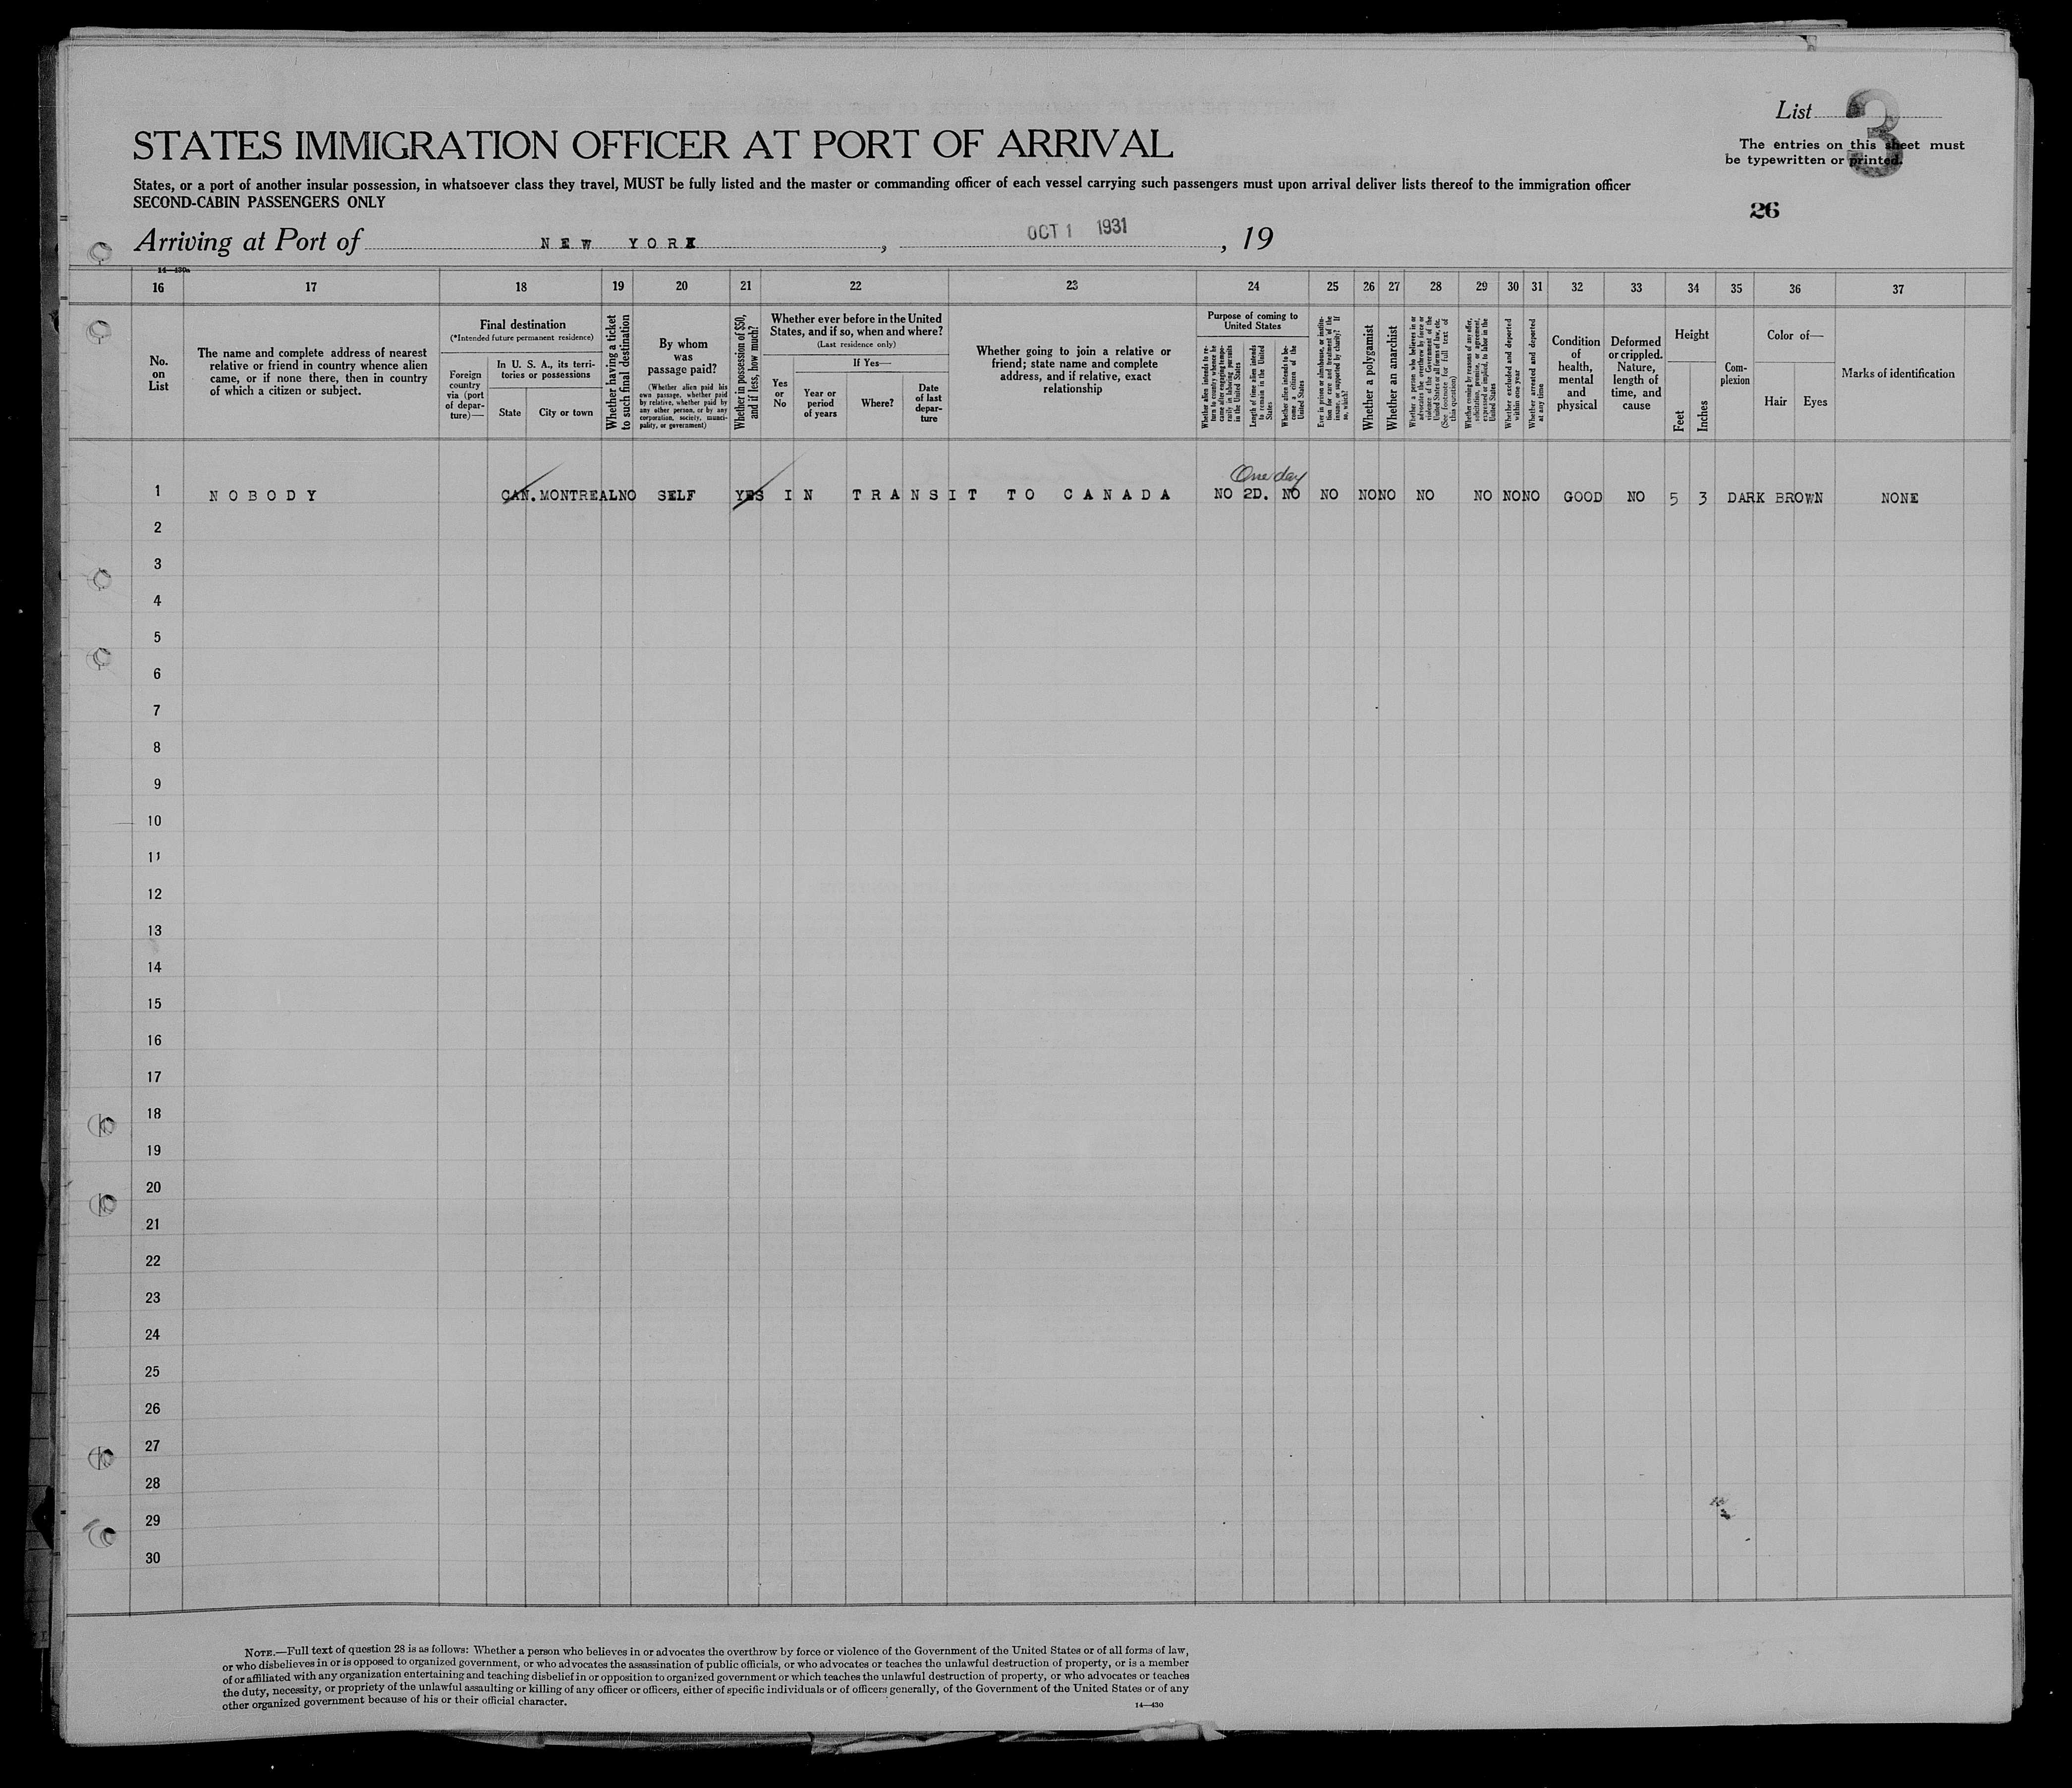 List 3
STATES IMMIGRATION OFFICER AT PORT OF ARRIVAL
The entries on this sheet must
be typewritten or printed.
States, or a port of another insular possession, in whatsoever class they travel, MUST be fully listed and the master or commanding officer of each vessel carrying such passengers must upon arrival deliver lists thereof to the immigration officer
SECOND-CABIN PASSENGERS ONLY
26
Arriving at Port of NEW YORK, OCT 1 1931, 19
14—430a
16 17 18 19 20 21 22 23 24 25 26 27 28 29 30 31 32 33 34 35 36 37
No.
on
List
The name and complete address of nearest
relative or friend in country whence alien
came, or if none there, then in country
of which a citizen or subject.
Final destination
(*Intended future permanent residence)
Foreign
country
via (port
of depar-
ture)—
In U. S. A., its terri-
tories or possessions
State
City or town
Whether having a ticket
to such final destination
By whom
was
passage paid?
(Whether alien paid his
own passage, whether paid
by relative, whether paid by
any other person, or by any
corporation, society, munici-
pality, or government)
Whether in possession of $50,
and if less, how much?
Whether ever before in the United
States, and if so, when and where?
(Last residence only)
Yes
or
No
If Yes—
Year or
period
of years
Where?
Date
of last
depar-
ture
Whether going to join a relative or
friend; state name and complete
address, and if relative, exact
relationship
Purpose of coming to
United States
Whether alien intends to re-
turn to country whence he
came after engaging tempo-
rarily in laboring pursuits
in the United States
Length of time alien intends
to remain in the United
States
Whether alien intends to be-
come a citizen of the
United States
Ever in prison or almshouse, or institu-
tion for care and treatment of the
insane, or supported by charity? If
so, which?
Whether a polygamist
Whether an anarchist
Whether a person who believes in or
advocates the overthrow by force or
violence of the Government of the
United States or all forms of law, etc.
(See footnote for full text of
this question)
Whether coming by reasons of any offer,
solicitation, promise, or agreement,
expressed or implied, to labor in the
United States
Whether excluded and deported
within one year
Whether arrested and deported
at any time
Condition
of
health,
mental
and
physical
Deformed
or crippled.
Nature,
length of
time, and
cause
Height
Feet
Inches
Com-
plexion
Color of—
Hair
Eyes
Marks of identification
One day
1 NOBODY CAN. MONTREAL NO SELF YES IN TRANSIT TO CANADA NO 2D. NO NO NO NO NO NO NO NO GOOD NO 5 3 DARK BROWN NONE
2
3
4
5
6
7
8
9
10
11
12
13
14
15
16
17
18
19
20
21
22
23
24
25
26
27
28
29
30
NOTE.—Full text of question 28 is as follows: Whether a person who believes in or advocates the overthrow by force or violence of the Government of the United States or of all forms of law,
or who disbelieves in or is opposed to organized government, or who advocates the assassination of public officials, or who advocates or teaches the unlawful destruction of property, or is a member
of or affiliated with any organization entertaining and teaching disbelief in or opposition to organized government or which teaches the unlawful destruction of property, or who advocates or teaches
the duty, necessity, or propriety of the unlawful assaulting or killing of any officer or officers, either of specific individuals or of officers generally, of the Government of the United States or of any
other organized government because of his or their official character.
14—430